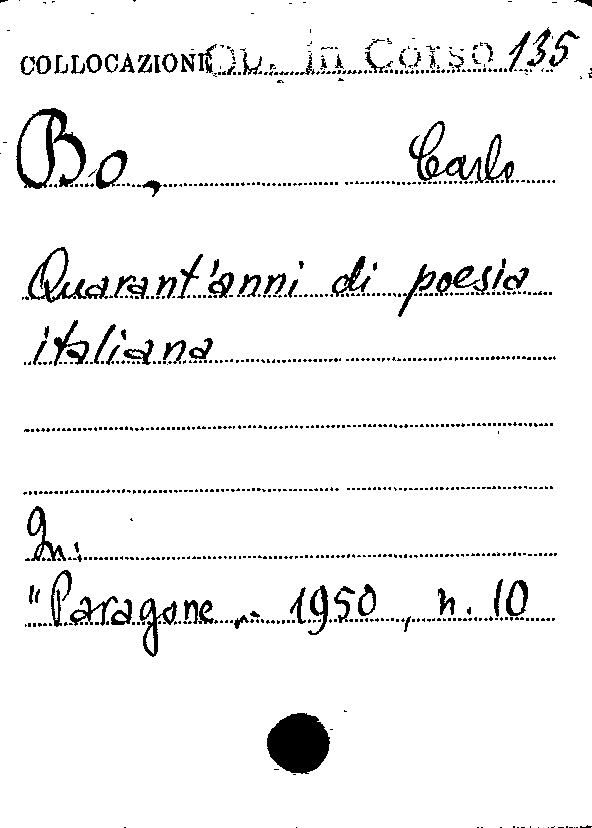 COLLOCAZIONE OL. in Corso 135
Bo, Carlo
Quarant'anni di poesia
italiana
In:
"Paragone„ 1950, n. 10